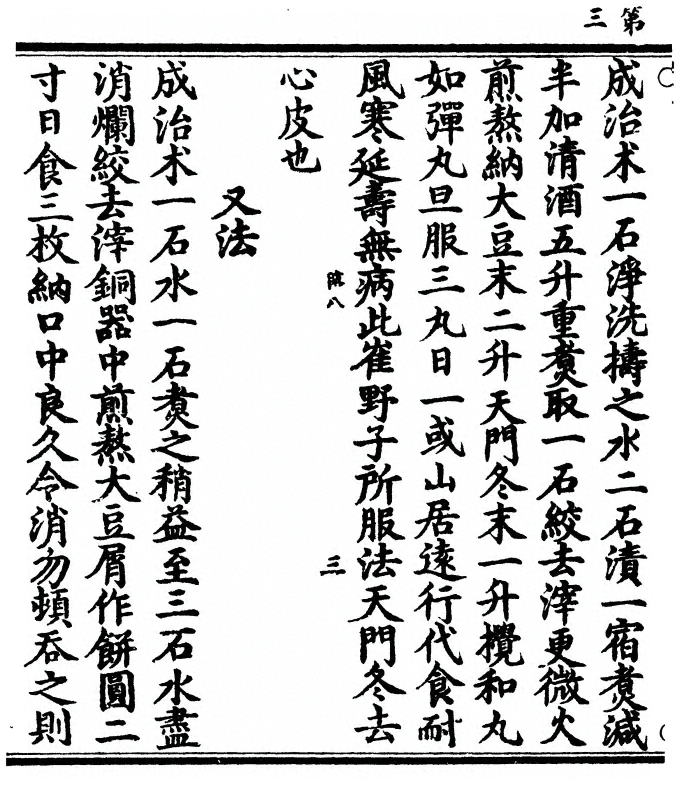 第三
成治术一石淨洗擣之水二石漬一宿煑減
半加清酒五升重煑取一石絞去滓更微火
煎熬納大豆末二升天門冬末一升攪和丸
如彈丸旦服三丸日一或山居遠行代食耐
風寒延壽無病此崔野子所服法天門冬去
八
三
心皮也
又法
成治术一石水一石煑之稍益至三石水盡
消爛絞去滓銅器中煎熬大豆屑作餅圓二
寸日食三枚納口中良久令消勿頓吞之則